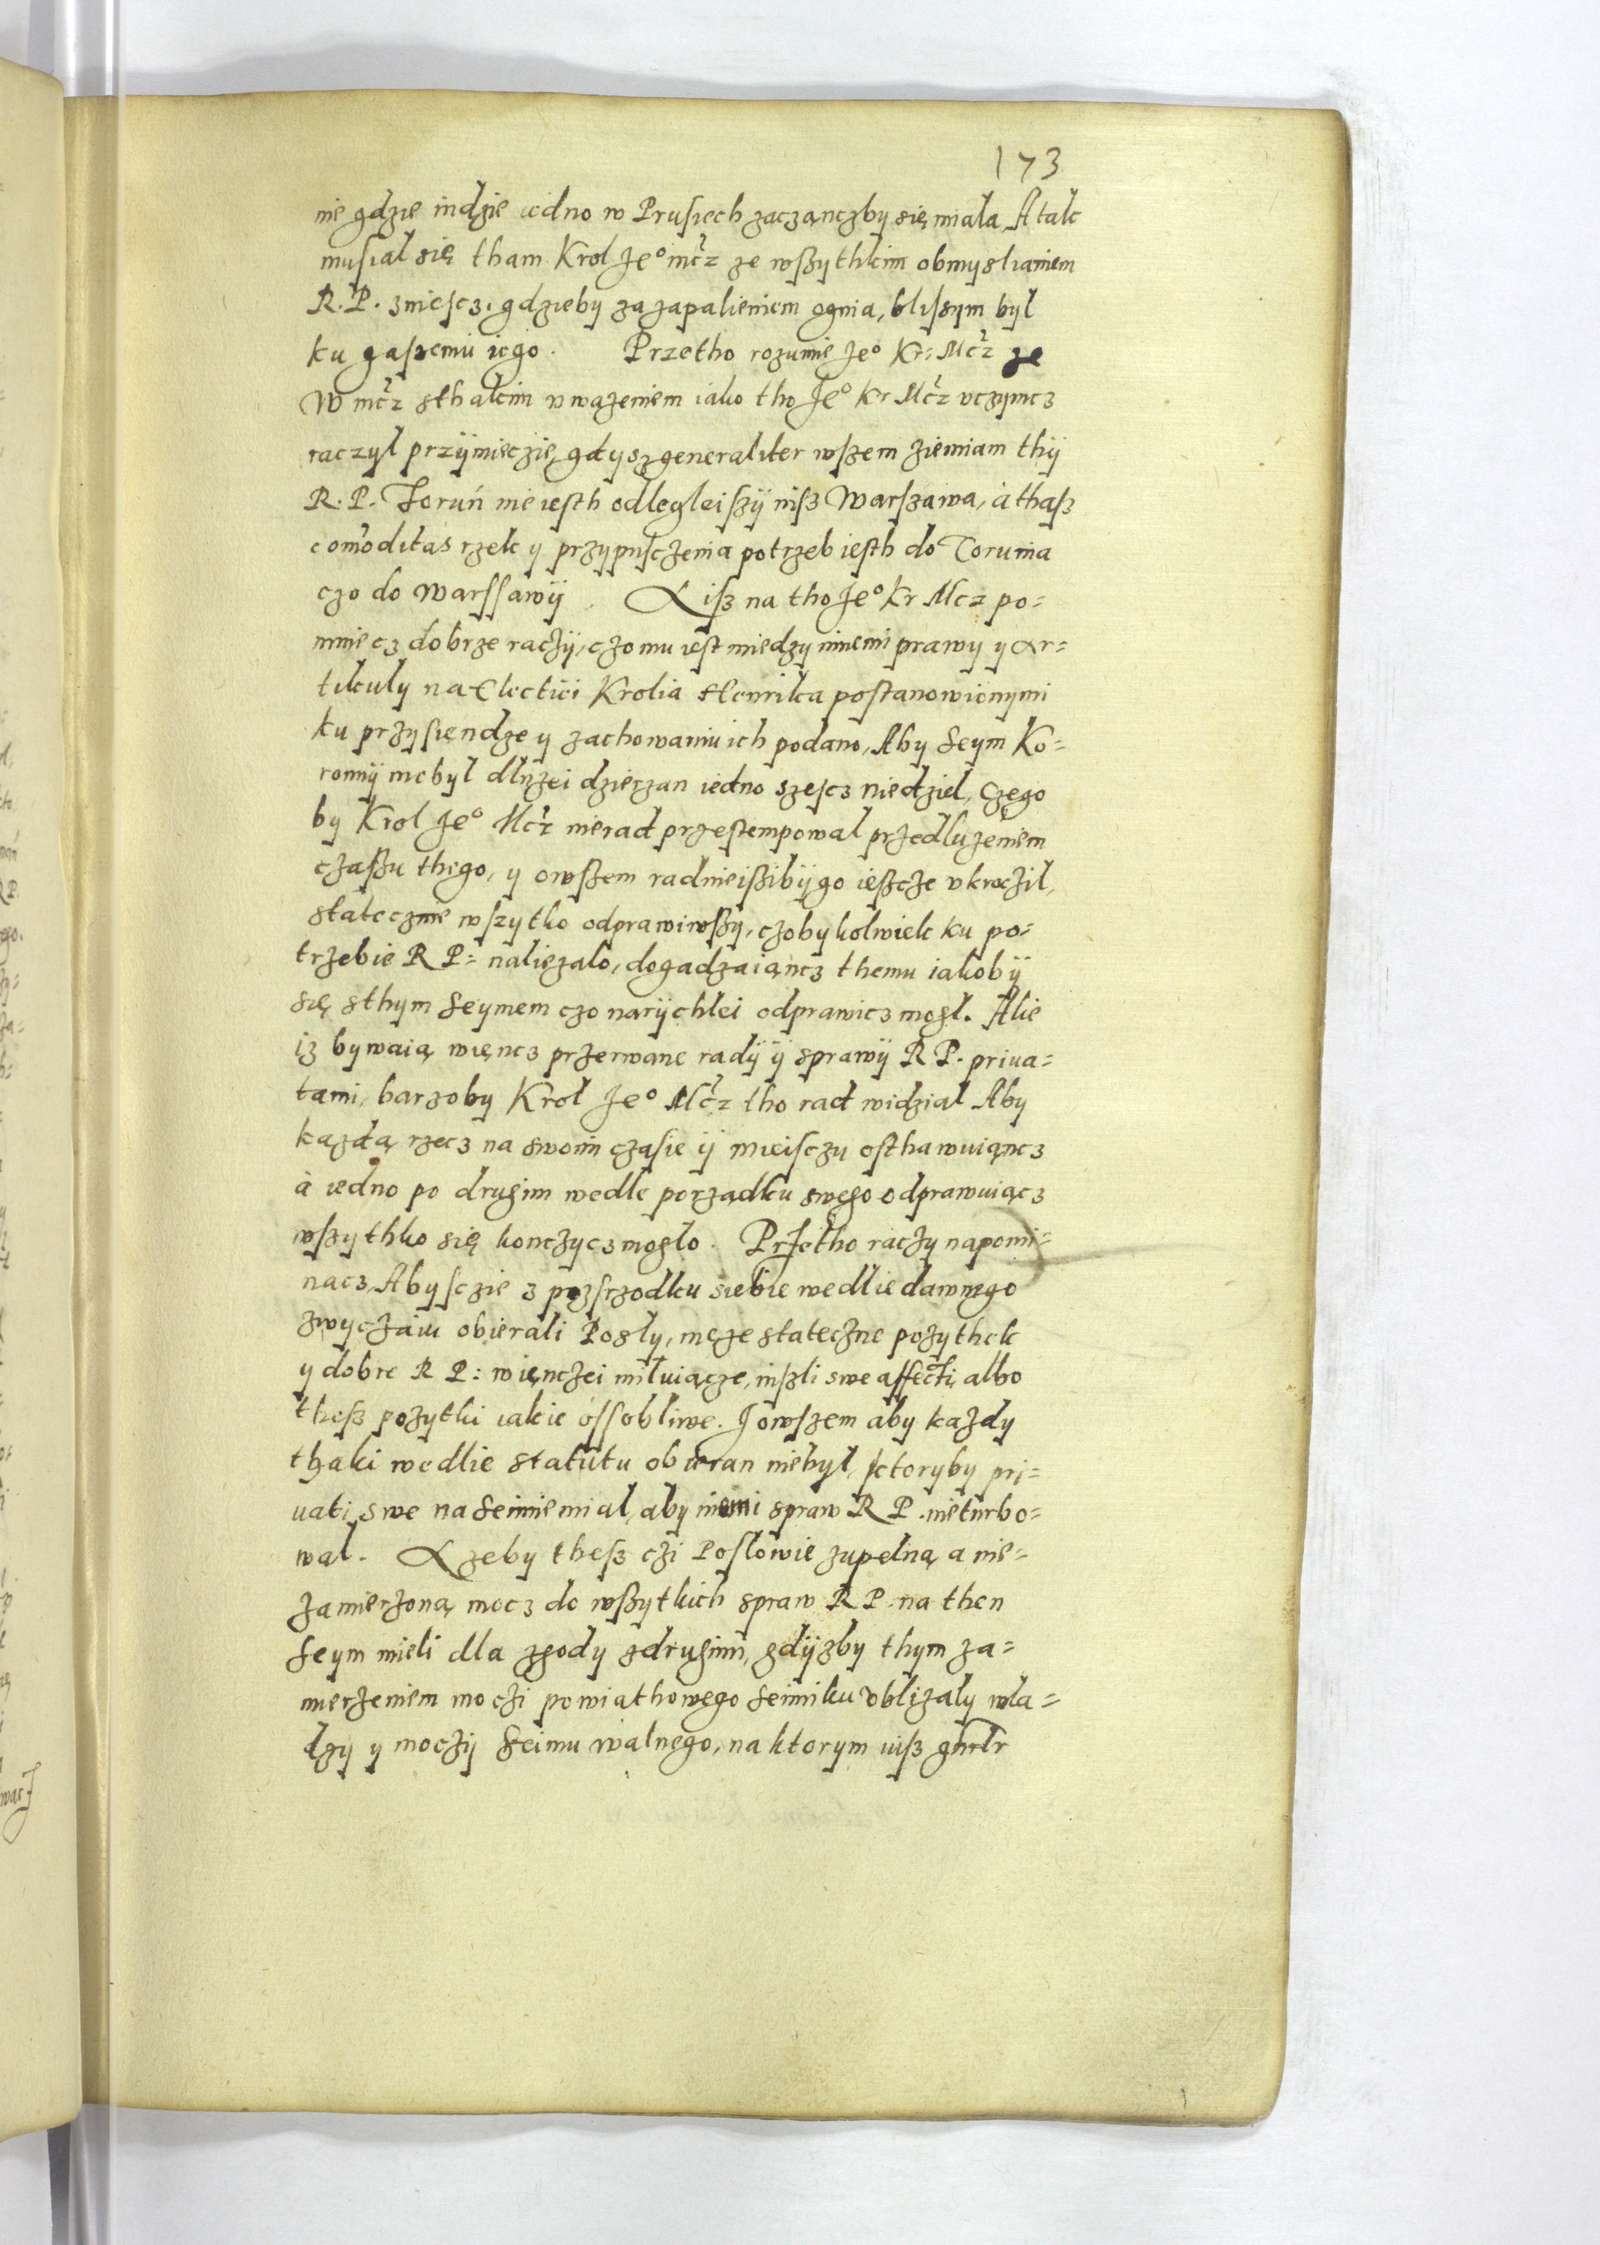 173
nie gdzie indzie iedno w Prusiech zaczanczby się miala A tak
musial się tham Krol Je° mcz ze wszythkim obmyslianiem
R. P. zniescz, gdzieby za zapalieniem ognia, blissym byl
ku gaszemu iego. Przetho rozumie Je° Kr: Mcz ze
W mcz sthakim uważeniem iako tho Je° Kr Mcz uczyncz
raczyl przijmieczie, gdysz generaliter wszem ziemiam thij
R. P. Toruń nie iesth odlegleiszij nisz Warszawa, à thasz
com̃oditas rzek y przypusczenia potrzeb iesth do Torunia
czo do Warssawij. A isz na tho Je° Kr Mcz po=
mniecz dobrze raczij, czo mu iest miedzy innemi prawy y Ar=
tikuly na Electiei Krolia Henrika postanowionymi
ku przysiendze y zachowaniu ich podano, Aby Seym Ko=
ronnij nie byl dlużei dzierzan iedno szescz niedziel, Czego
by Krol Je° Mcz nierad przestempowal przedlużeniem
czaszu thego, y owszem radnieiszibijgo ieszcze ukroczil,
statecznie wszytko odprawiwszy, czobykolwiek ku po=
trzebie R P: naliezalo, dogadzaiąncz themu iakobij
się sthym Seymem czo narijchlei odprawicz mogl. Alie
iż bywaią więncz przerwane radij ij sprawij R P. priua=
tami, barzoby Krol Je° Mcz tho rad widzial Aby
każdą rzecz na swoim czasie ij mieisczu osthawuiąncz
à iedno po drugim wedle porządku swego odprawuiącz
wszythko się konczycz moglo. Przetho raczy napomi=
nacz, Abysczie z pozsrzodku siebie wedlie dawnego
zwyczaiu obierali Posly, męże stateczne pożythek
y dobre R P: więnczei miluiącze, niszli swe affecti albo
thesz pożytki iakie ossobliwe. J owszem aby każdy
thaki wedlie statutu obieran niebyl, ktoryby pri=
uati swe na Seimie mial, aby niemi spraw R P. nieturbo=
wal. A zeby thesz czi Poslowie zupelną a nie=
zamierzoną mocz do wszytkich spraw R P. na then
Seym mieli dla zgody zdrugimi, gdijzby thym za=
mierzeniem moczi powiathowego Seimiku ubliżaly wla=
dzy y moczij Seimu walnego, na ktorym iusz gnrlr